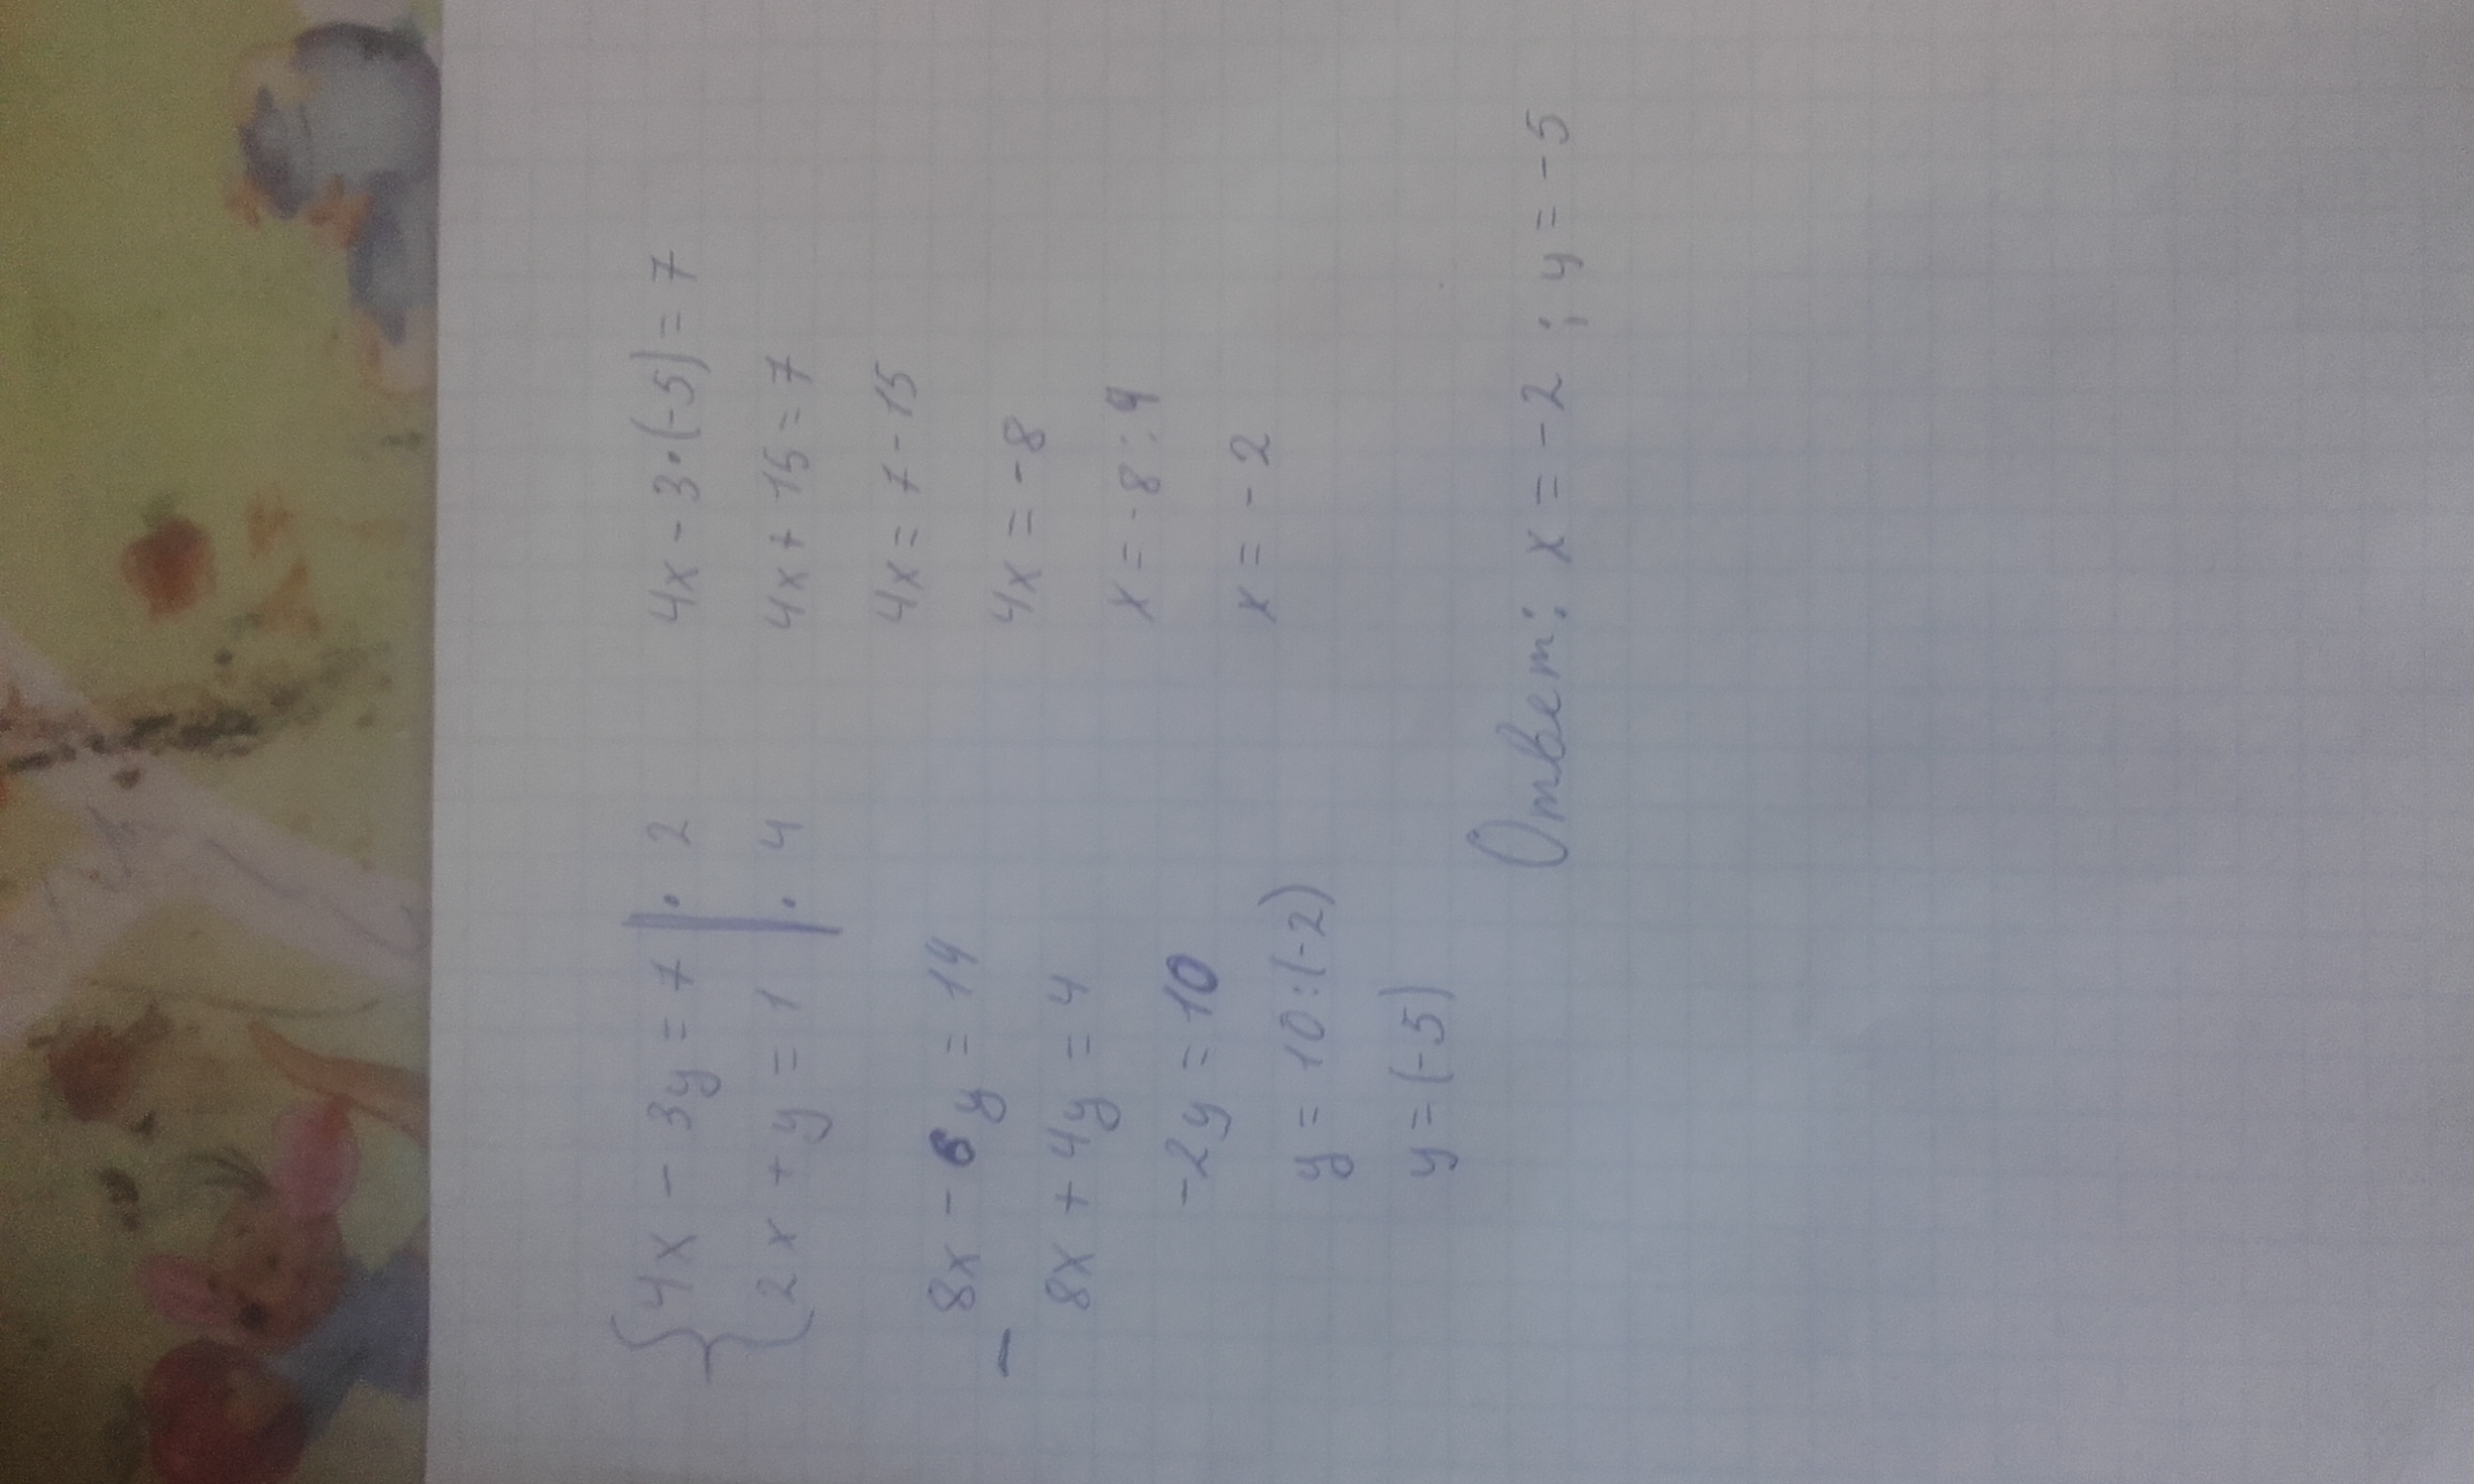 4x - 3y = 7 | · 2
2x + y = 1 | · 4
8x - 6y = 14
-
8x + 4y = 4
-2y = 10
y = 10 : (-2)
y = (-5)
4x - 3 · (-5) = 7
4x + 15 = 7
4x = 7 - 15
4x = -8
x = -8 : 4
x = -2
Ответ: x = -2 ; y = -5